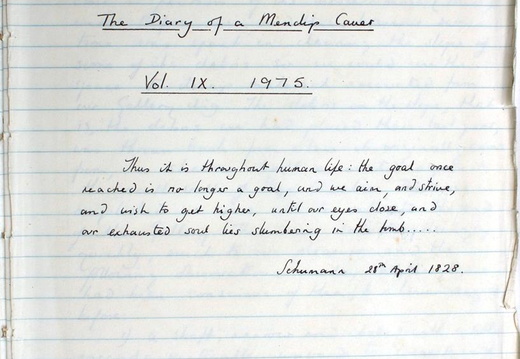 The Diary of a Mendip Caver
Vol. IX. 1975.
Thus it is throughout human life: the goal once
reached is no longer a goal, and we aim, and strive,
and wish to get higher, until our eyes close, and
our exhausted soul lies slumbering in the tomb.....
Schumann 28th April 1828.